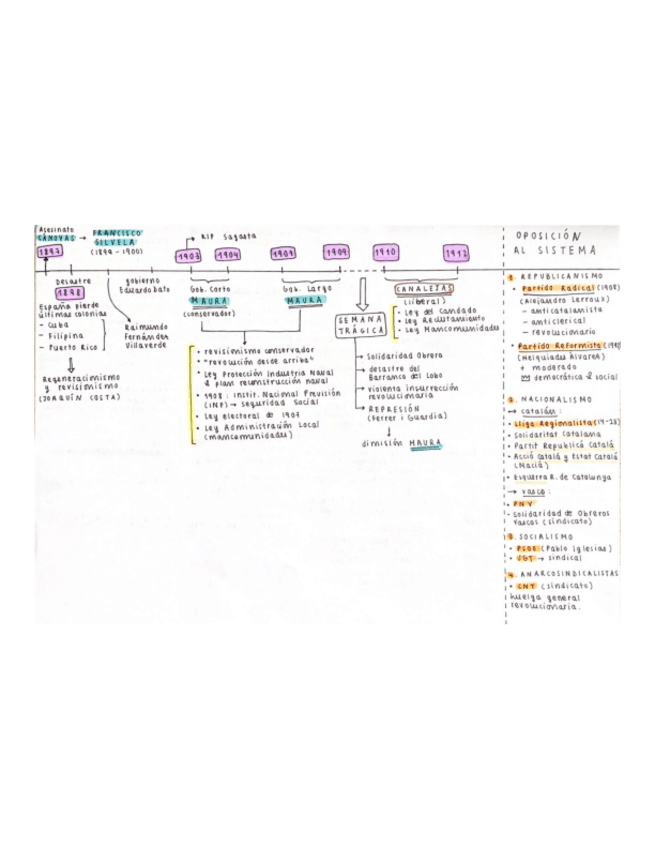 Asesinato
CÁNOVAS → FRANCISCO
SILVELA
(1899 - 1900)
1897
RIP Sagasta
1903
1904
1907
1909
1910
1912
Desastre
1898
España pierde
últimas colonias
- Cuba
- Filipina
- Puerto Rico
Regeneracionismo
y revisionismo
(JOAQUÍN COSTA)
gobierno
Eduardo Dato
Raimundo
Fernández
Villaverde
Gob. Corto
MAURA
(conservador)
Gob. Largo
MAURA
• revisionismo conservador
• "revolución desde arriba"
• Ley Protección Industria Naval
& plan reconstrucción naval
• 1908: Instit. Nacional Previsión
(INP) → seguridad social
• Ley electoral de 1907
• Ley Administración Local
(mancomunidades)
SEMANA
TRÁGICA
→ Solidaridad Obrera
→ desastre del
Barranco del Lobo
→ violenta insurrección
revolucionaria
→ REPRESIÓN
(Ferrer i Guardia)
dimisión MAURA
CANALEJAS
(liberal)
• Ley del Candado
• Ley Reclutamiento
• Ley Mancomunidades
OPOSICIÓN
AL SISTEMA
1. REPUBLICANISMO
• Partido Radical (1908)
(Alejandro Lerroux)
- anticatalanista
- anticlerical
- revolucionario
• Partido Reformista
(Melquiades Álvarez)
+ moderado
democrática & social
2. NACIONALISMO
→ catalán:
• Lliga Regionalista (14-23)
• Solidaritat Catalana
• Partit Republicà Català
• Acció Català y Estat Català
(Macià)
• Esquerra R. de Catalunya
→ vasco:
• PNV
• Solidaridad de Obreros
Vascos (sindicato)
3. SOCIALISMO
• PSOE (Pablo Iglesias)
• UGT → sindical
4. ANARCOSINDICALISTAS
• CNT (sindicato)
huelga general
revolucionaria.